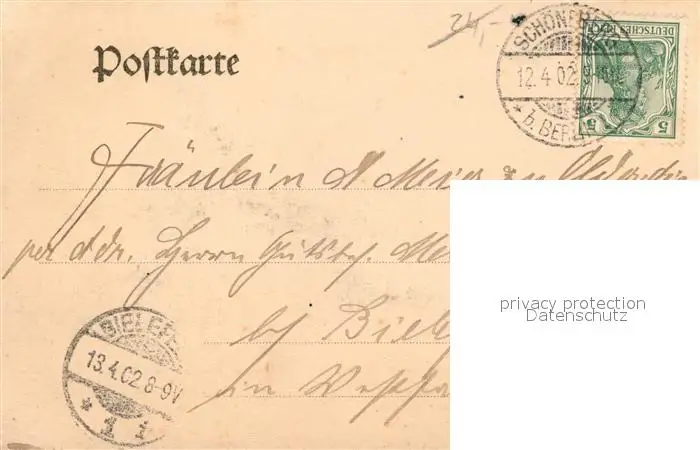 24,-
Postkarte
SCHÖNEBERG
12.4.02
* b. BERLIN
DEUTSCHES REICH
5 5
Fräulein A Meier zu
per Adr. Herrn Gutsbes.
by Biele
in Westfa
BIELEFE
13.4.02 8-9V
* 1 i
privacy protection
Datenschutz